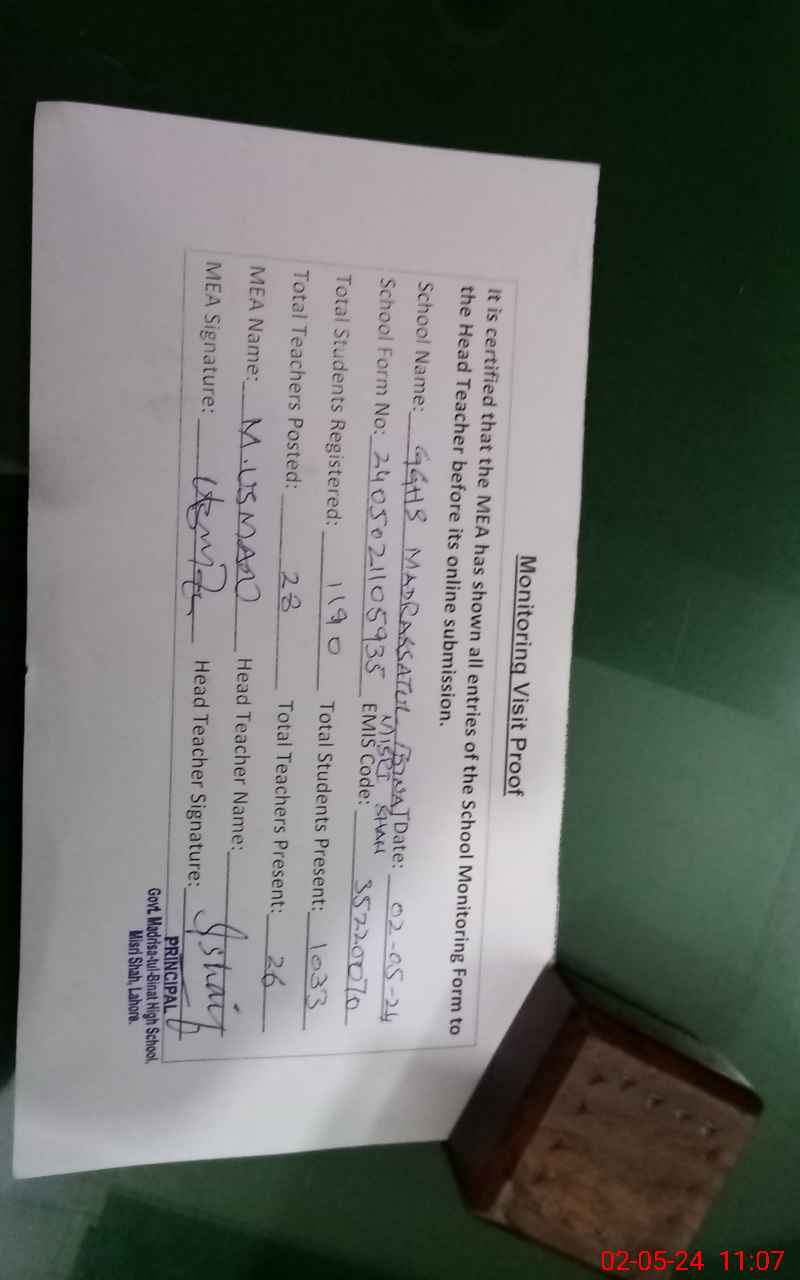 Monitoring Visit Proof
It is certified that the MEA has shown all entries of the School Monitoring Form to
the Head Teacher before its online submission.
School Name: GGHS MADRASSATUL BINAT Date: 02-05-24
MISRI SHAH
School Form No: 2405021105935 EMIS Code: 35220070
Total Students Registered: 1190 Total Students Present: 1033
Total Teachers Posted: 28 Total Teachers Present: 26
MEA Name: M.USMAN Head Teacher Name:
MEA Signature: Usman Head Teacher Signature:
PRINCIPAL
Govt. Madrisa-tul-Binat High School,
Misri Shah, Lahore.
02-05-24 11:07